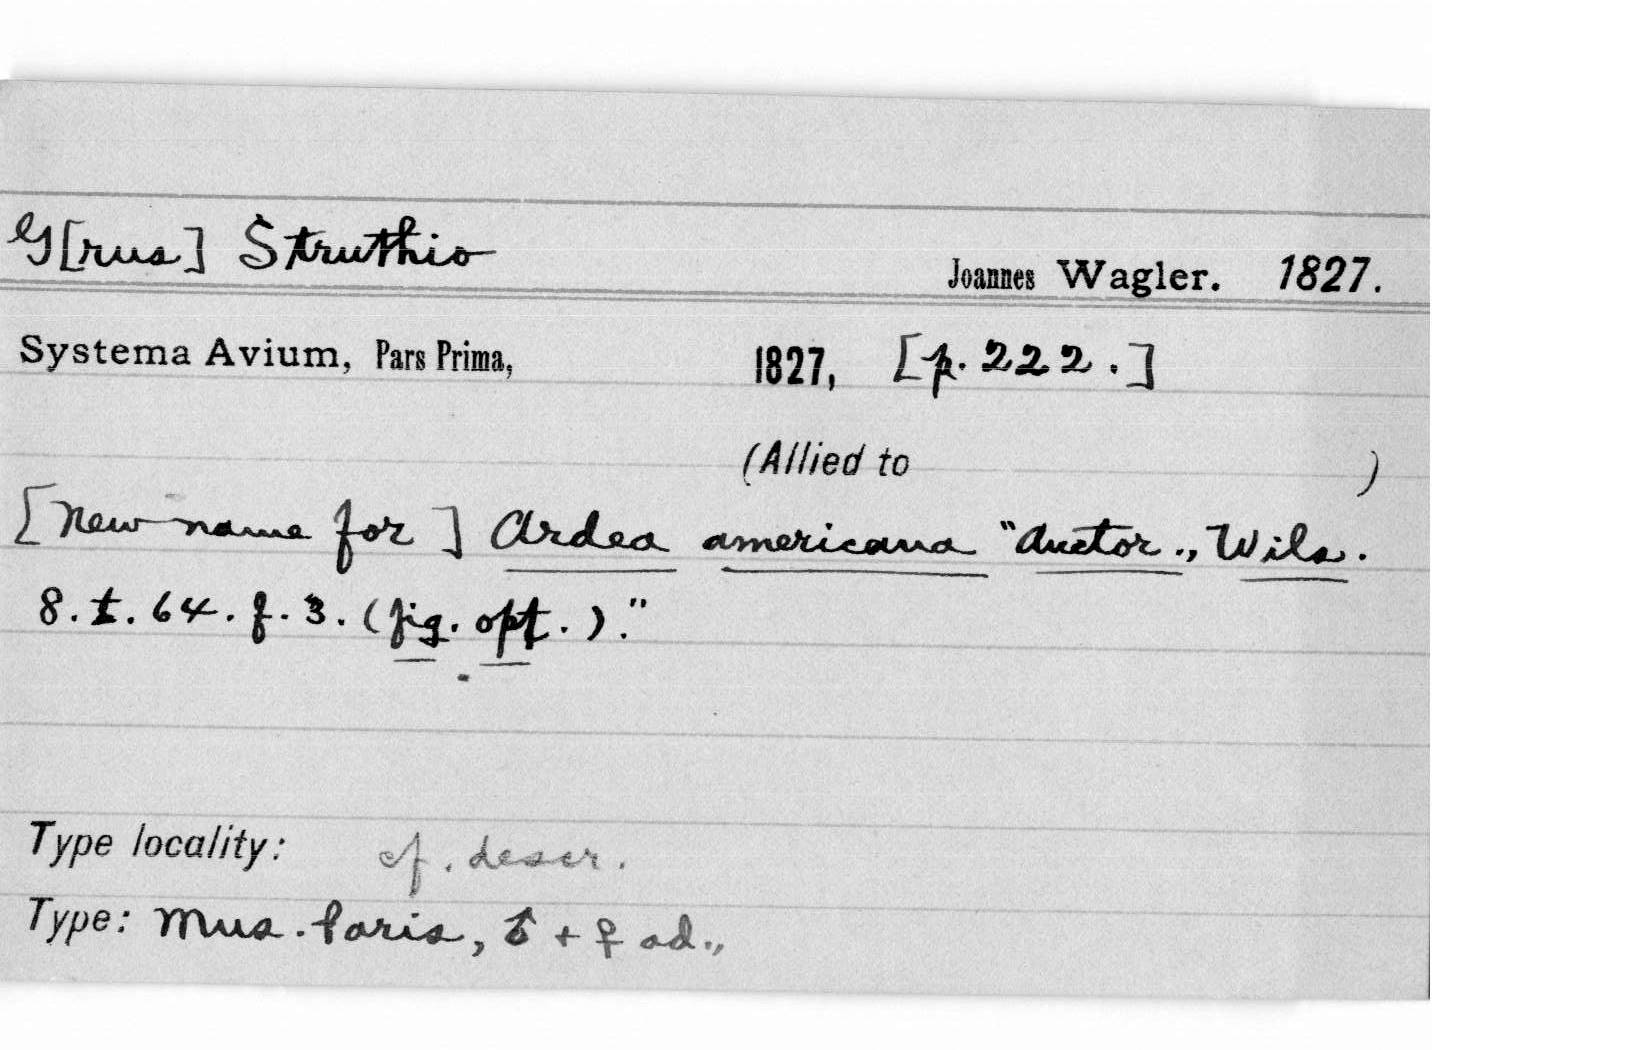 G[rus] Struthio
Joannes Wagler. 1827.
Systema Avium, Pars Prima, 1827, [p. 222.]
(Allied to )
[New name for] Ardea americana "Auctor., Wils.
8. t. 64. f. 3. (fig. opt.)."
Type locality: cf. descr.
Type: Mus. Paris, ♂ + ♀ ad.,